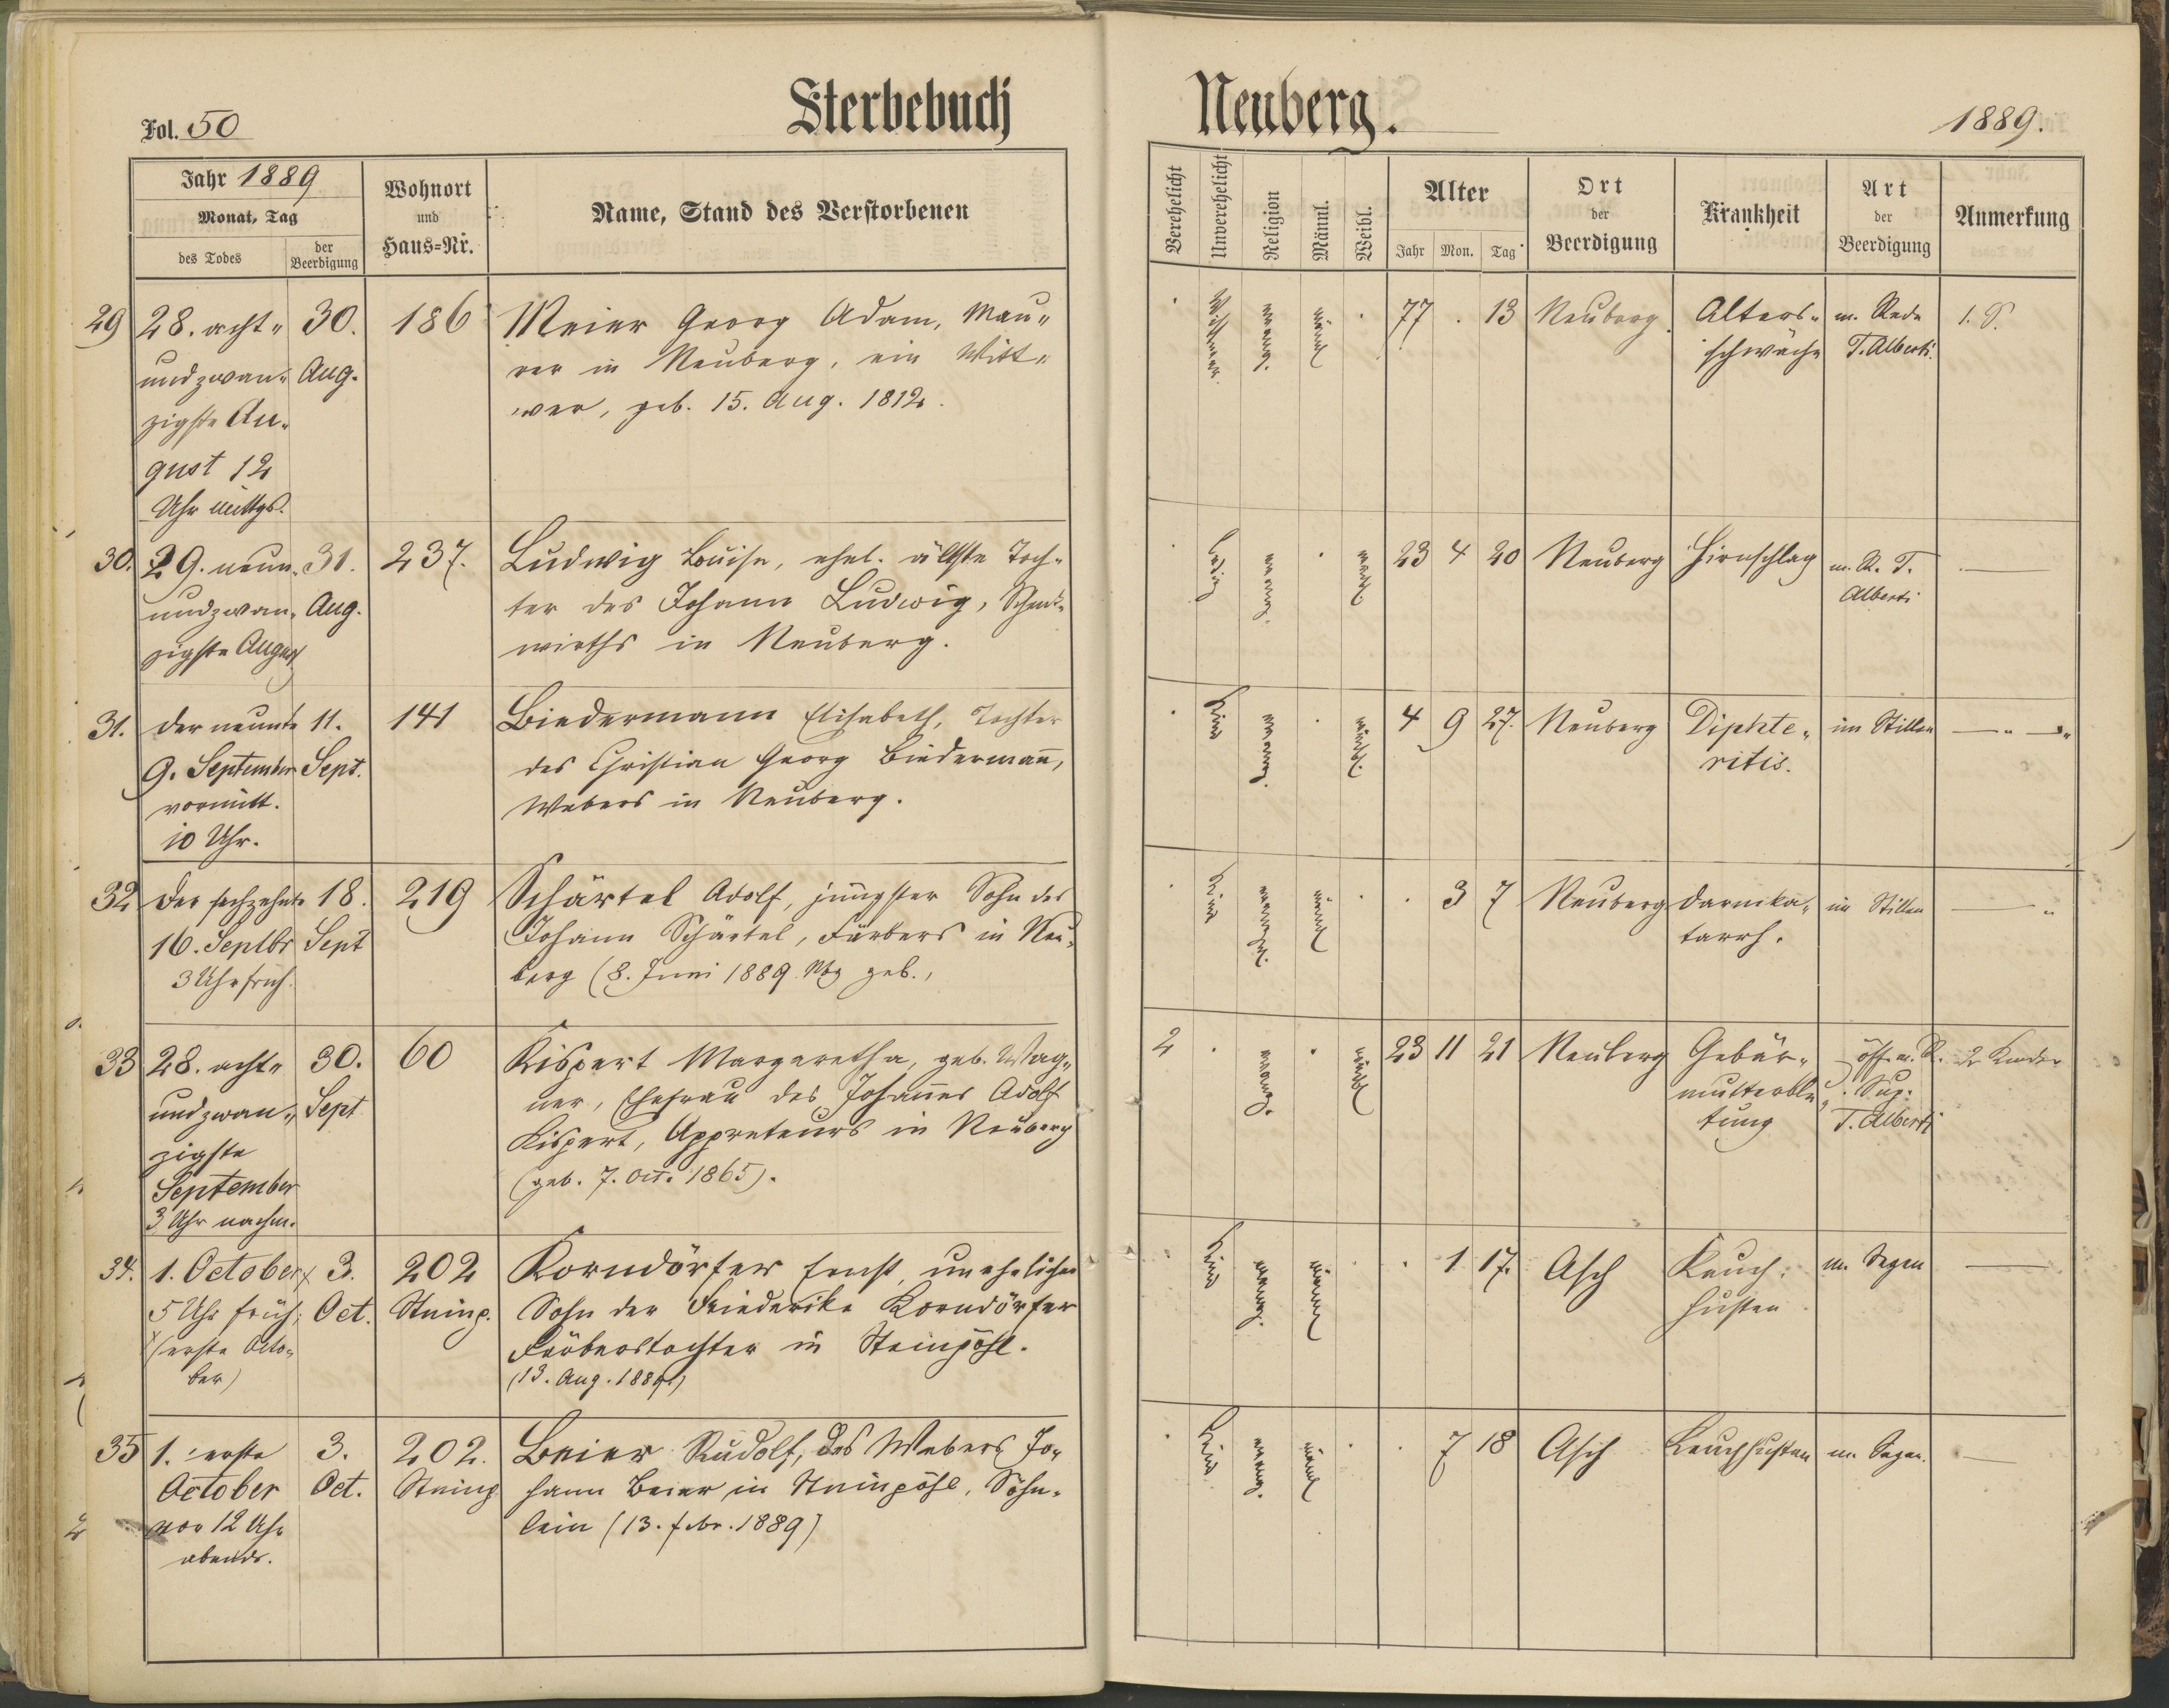 Fol. 50
Sterbebuch
Neuberg.
1889.
Jahr 1889
Monat, Tag
des Todes
der Beerdigung
Wohnort
und
Haus=Nr.
Name, Stand des Verstorbenen
Verehelicht
Unverehelicht
Religion
Männl.
Weibl.
Alter
Jahr Mon. Tag
Ort
der
Beerdigung
Krankheit
Art
der
Beerdigung
Anmerkung
29
28. acht„
undzwan„
zigste Au„
gust 12
Uhr mittgs.
30.
Aug.
186
Meier Georg Adam, Mau„
rer in Neuberg, ein Witt„
wer, geb. 15. Aug. 1812.
Wittwer
evang.
männl
77 . 13
Neuberg.
Alters„
schwäche
m. Rede
T. Alberti.
1. S.
30.
29. neun„
undzwan„
zigste August
31.
Aug.
237.
Ludwig Luise, ehel. älteste Toch„
ter des Johann Ludwig, Schenk„
wirths in Neuberg.
Ledig
evang.
weibl.
23 4 20
Neuberg
Hirnschlag
m. R. T.
Alberti
31.
der neunte
9. September
vormitt.
10 Uhr.
11.
Sept.
141
Biedermann Elisabeth, Tochter
des Christian Georg Biedermañ,
Webers in Neuberg.
Kind
evang.
weibl.
4 9 27.
Neuberg
Diphte„
ritis.
im Stillen
32
der sechzehnte
16. Septbr
3 Uhr früh.
18.
Sept
219
Schärtel Adolf, jüngster Sohn des
Johann Schärtel, Färbers in Neu„
berg (8. Juni 1889 Nbg geb.,
Kind
evang.
männl
. 3 7
Neuberg
Darmka„
tarrh.
im Stillen
33
28. acht„
undzwan„
zigste
September
3 Uhr nachm.
30.
Sept
60
Kispert Margaretha, geb. Wag„
ner, Ehefrau des Johañes Adolf
Kispert, Appreteurs in Neuberg
(geb. 7. Oct. 1865).
2
evang.
weibl
23 11 21
Neuberg
Gebär„
mutterblu„
tung
öff. m. R.
Sup.
T. Alberti
2 Kinder
34.
1. October x
5 Uhr früh;
x (erste Octo„
ber)
3.
Oct.
202
Steinp.
Korndörfer Ernst, unehelicher
Sohn der Friederike Korndörfer
Färberstochter in Steinpöhl.
(13. Aug. 1889)
Kind
evang.
männl
. 1 17.
Asch
Keuch„
husten
m. Segen
35
1. erste
October
vor 12 Uhr
abends.
3.
Oct.
202.
Steinp
Beier Rudolf, des Webers Jo„
hann Beier in Steinpöhl, Söhn„
lein (13. Febr. 1889)
Kind
evang.
männl
. 7 18
Asch
Keuchhusten
m. Segen.